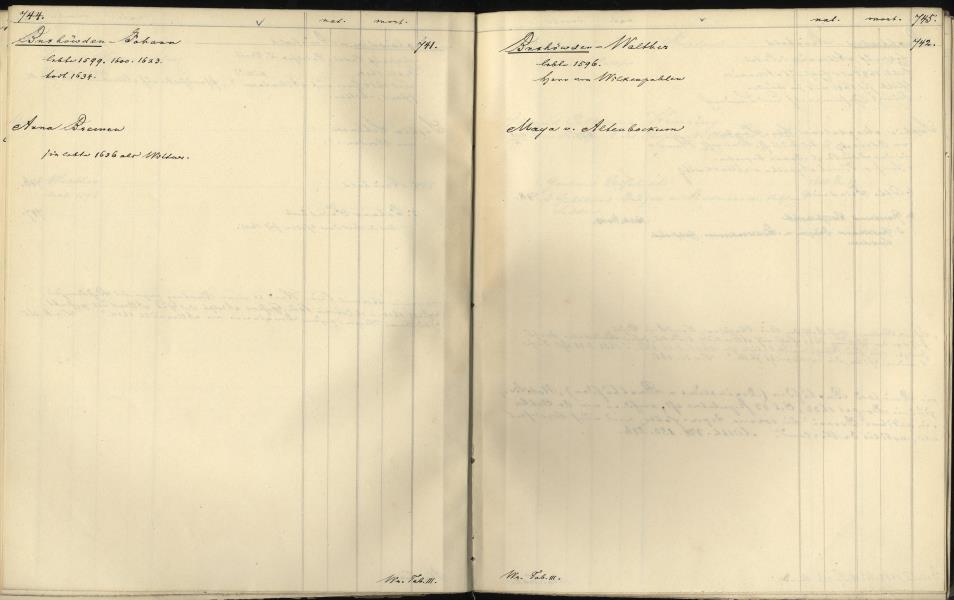 744.
nat. mort.
Buxhöwden - Johann 741.
lebte 1599. 1600. 1623.
todt 1634.
Anna Bremen
sie lebte 1636 als Wittwe.
Wr. Tab. III.
nat. mort. 745.
Buxhöwden - Walther 742.
lebte 1596.
Herr von Wilkenpahlen
Maya v. Altenbockum
Wr. Tab. III.